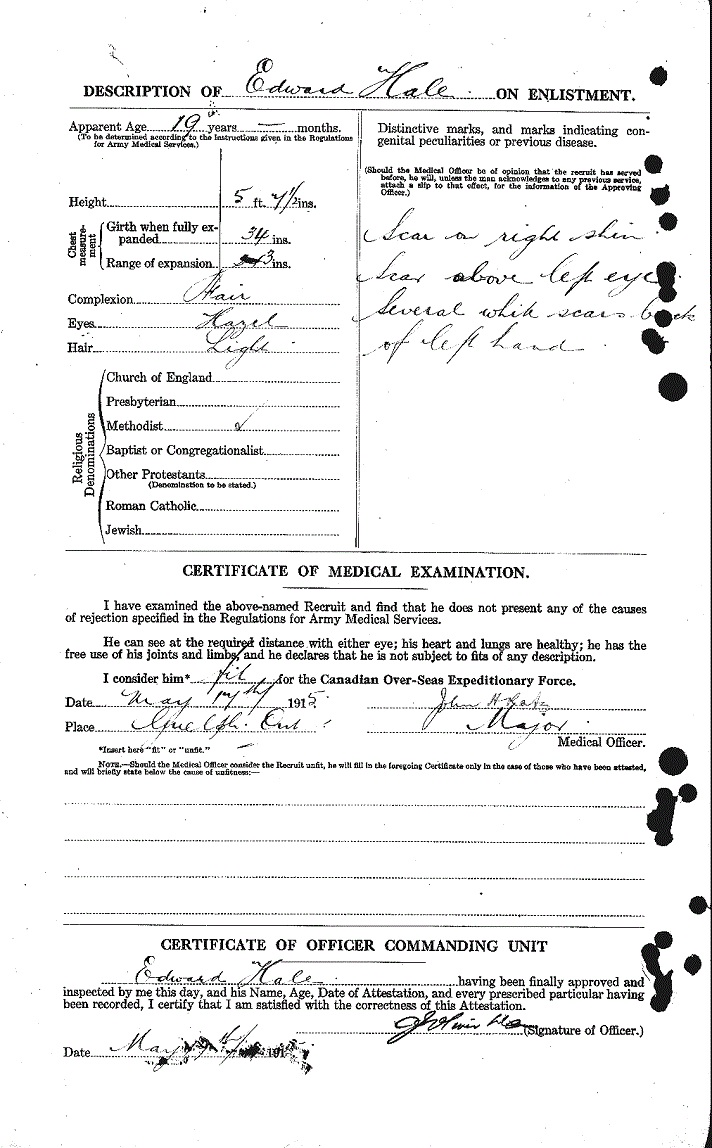 DESCRIPTION OF Edward Hale ON ENLISTMENT.
Apparent Age 19 years — months.
(To be determined according to the instructions given in the Regulations for Army Medical Services.)
Height 5 ft. 7 1/2 ins.
Chest measurement
Girth when fully expanded 34 ins.
Range of expansion 3 ins.
Complexion Fair
Eyes Hazel
Hair Light
Religious Denominations
Church of England
Presbyterian
Methodist ✓
Baptist or Congregationalist
Other Protestants
(Denomination to be stated.)
Roman Catholic
Jewish
Distinctive marks, and marks indicating congenital peculiarities or previous disease.
(Should the Medical Officer be of opinion that the recruit has served before, he will, unless the man acknowledges to any previous service, attach a slip to that effect, for the information of the Approving Officer.)
Scar on right shin
Scar above left eye.
Several white scars back
of left hand.
CERTIFICATE OF MEDICAL EXAMINATION.
I have examined the above-named Recruit and find that he does not present any of the causes
of rejection specified in the Regulations for Army Medical Services.
He can see at the required distance with either eye; his heart and lungs are healthy; he has the
free use of his joints and limbs, and he declares that he is not subject to fits of any description.
I consider him* fit for the Canadian Over-Seas Expeditionary Force.
Date May 1915
John H
Place Guelph. Ont
Major
Medical Officer.
*Insert here "fit" or "unfit."
NOTE.—Should the Medical Officer consider the Recruit unfit, he will fill in the foregoing Certificate only in the case of those who have been attested,
and will briefly state below the cause of unfitness:—
CERTIFICATE OF OFFICER COMMANDING UNIT
Edward Hale having been finally approved and
inspected by me this day, and his Name, Age, Date of Attestation, and every prescribed particular having
been recorded, I certify that I am satisfied with the correctness of this Attestation.
(Signature of Officer.)
Date May 191